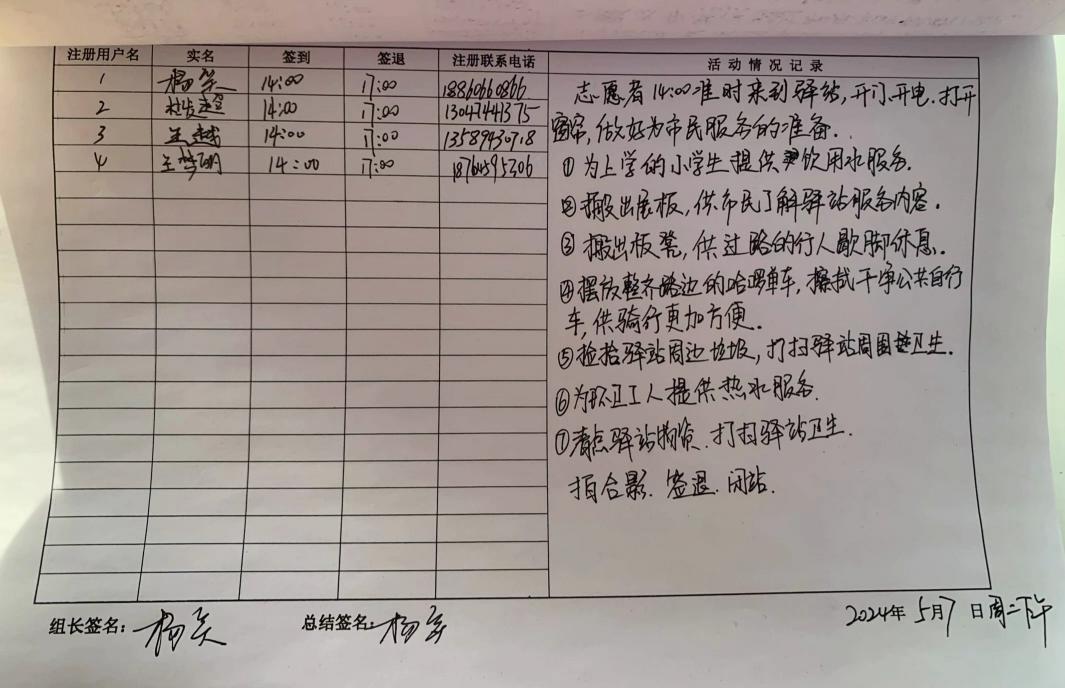 注册用户名 实名 签到 签退 注册联系电话 活动情况记录
1 14:00 17:00 18860660866
2 14:00 17:00 13047441375
3 王越 14:00 17:00 13589430718
4 王梦明 14:00 17:00 18764595306
志愿者14:00准时来到驿站,开门、开电、打开
窗帘,做好为市民服务的准备.
①为上学的小学生提供饮用水服务.
②搬出展板,供市民了解驿站服务内容.
③搬出板凳,供过路的行人歇脚休息.
④摆放整齐路边的哈啰单车,擦拭干净公共自行
车,供骑行更加方便.
⑤捡拾驿站周边垃圾,打扫驿站周围卫生.
⑥为环卫工人提供热水服务.
⑦清点驿站物资、打扫驿站卫生.
拍合影、签退、闭站.
组长签名: 总结签名: 2024年5月7日周二下午